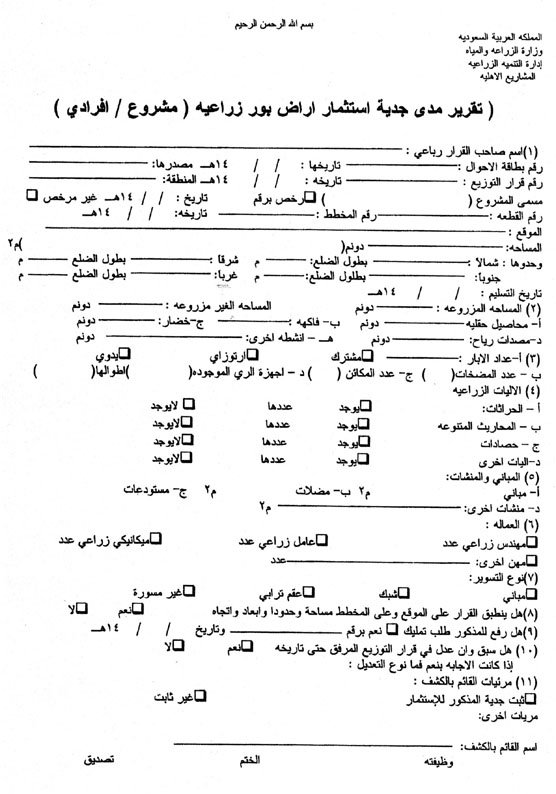 بسم الله الرحمن الرحيم
المملكه العربية السعوديه
وزارة الزراعه والمياه
إدارة التنميه الزراعيه
المشاريع الاهليه
( تقرير مدى جدية استثمار اراض بور زراعيه ( مشروع / افرادي )
(١)اسم صاحب القرار رباعي :
رقم بطاقة الاحوال : تاريخها : / / ١٤هـ مصدرها:
رقم قرار التوزيع : تاريخه : / / ١٤هـ المنطقة:
مسمى المشروع ( ) ❑رخص برقم تاريخ : / / ١٤هـ غير مرخص ❑
رقم القطعه : رقم المخطط : تاريخه: / / ١٤هـ
الموقع :
المساحه: دونم( )م٢
وحدوها : شمالا: بطول الضلع: م شرقا : بطول الضلع م
جنوبا: بطلول الضلع: م غربا: بطول الضلع م
تاريخ التسليم : / / ١٤هـ
(٢) المساحه المزروعه : دونم المساحه الغير مزروعه : دونم
أ- محاصيل حقليه دونم ب- فاكهه : دونم ج-خضار: دونم
د-مصدات رياح: دونم هـ - انشطه اخرى: دونم
(٣) أ-عداد الابار : ❑مشترك ❑ارتوزاي ❑يدوي
ب - عدد المضخات( ) ج- عدد المكائن ( ) د - اجهزة الري الموجوده( )اطوالها( )
(٤) الاليات الزراعيه
أ - الحراثات: ❑يوجد عددها ❑لايوجد
ب - المحاريث المتنوعه ❑يوجد عددها ❑لايوجد
ج - حصادات ❑يوجد عددها ❑لايوجد
د-اليات اخرى ❑يوجد عددها ❑لايوجد
(٥) المباني والمنشات:
أ- مباني م٢ ب- مضلات م٢ ج- مستودعات
د- منشات اخرى: م٢
(٦) العماله :
❑مهندس زراعي عدد ❑عامل زراعي عدد ❑ميكانيكي زراعي عدد
❑مهن اخرى: عدد
(٧)نوع التسوير:
❑مباني ❑شبك ❑عقم ترابي ❑غير مسورة
(٨)هل ينطبق القرار على الموقع وعلى المخطط مساحة وحدودا وابعاد واتجاه ❑نعم ❑لا
(٩)هل رفع للمذكور طلب تمليك ❑ نعم برقم وتاريخ / / ١٤هـ
(١٠)هل سبق وان عدل في قرار التوزيع المرفق حتى تاريخه ❑نعم ❑لا
إذا كانت الاجابه بنعم فما نوع التعديل :
(١١) مرئيات القائم بالكشف :
❑ثبت جدية المذكور للإستثمار ❑غير ثابت
مريات اخرى:
اسم القائم بالكشف:
وظيفته الختم تصديق